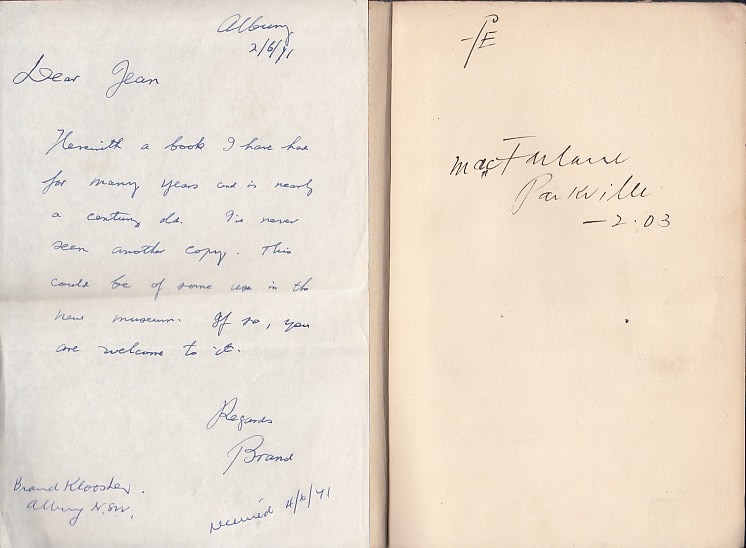 Albury
2/6/71
Dear Jean
Herewith a book I have had
for many years and is nearly
a century old. I've never
seen another copy. This
could be of some use in the
new museum. If so, you
are welcome to it.
Regards
Brand
Brand Klooster.
Albury N.S.W.
received 4/6/71
MacFarlane
Parkville
— 2.03